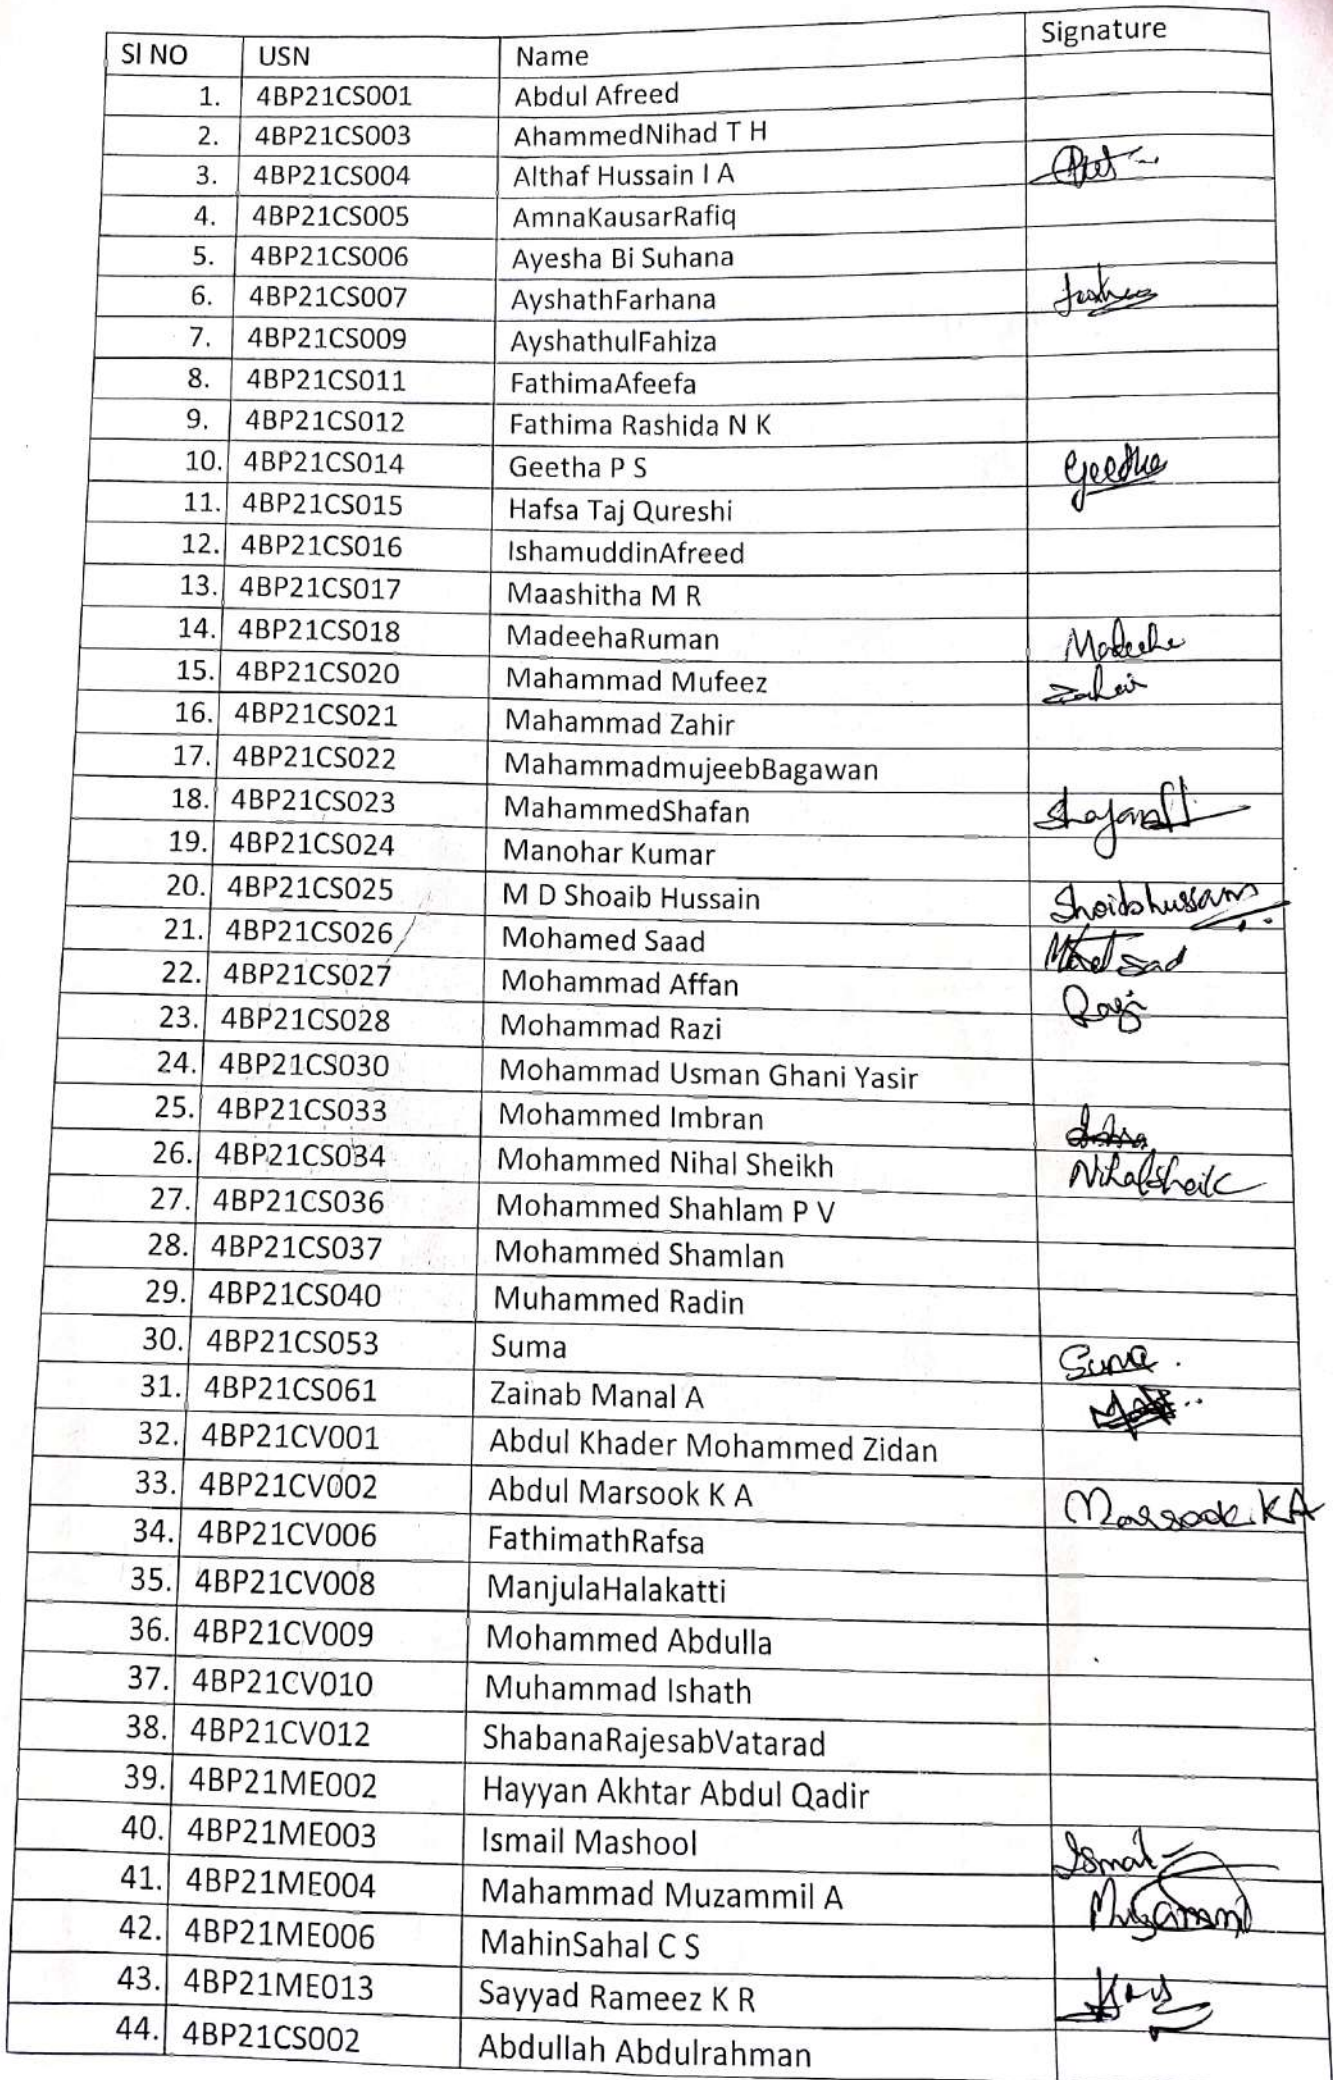 Sl NO USN Name Signature
1. 4BP21CS001 Abdul Afreed
2. 4BP21CS003 AhammedNihad T H
3. 4BP21CS004 Althaf Hussain I A
4. 4BP21CS005 AmnaKausarRafiq
5. 4BP21CS006 Ayesha Bi Suhana
6. 4BP21CS007 AyshathFarhana
7. 4BP21CS009 AyshathulFahiza
8. 4BP21CS011 FathimaAfeefa
9. 4BP21CS012 Fathima Rashida N K
10. 4BP21CS014 Geetha P S Geetha
11. 4BP21CS015 Hafsa Taj Qureshi
12. 4BP21CS016 IshamuddinAfreed
13. 4BP21CS017 Maashitha M R
14. 4BP21CS018 MadeehaRuman Madeeha
15. 4BP21CS020 Mahammad Mufeez Zahir
16. 4BP21CS021 Mahammad Zahir
17. 4BP21CS022 MahammadmujeebBagawan
18. 4BP21CS023 MahammedShafan
19. 4BP21CS024 Manohar Kumar
20. 4BP21CS025 M D Shoaib Hussain Shoibhussain
21. 4BP21CS026 Mohamed Saad Mohd Saad
22. 4BP21CS027 Mohammad Affan Razi
23. 4BP21CS028 Mohammad Razi
24. 4BP21CS030 Mohammad Usman Ghani Yasir
25. 4BP21CS033 Mohammed Imbran
26. 4BP21CS034 Mohammed Nihal Sheikh Nihalsheik
27. 4BP21CS036 Mohammed Shahlam P V
28. 4BP21CS037 Mohammed Shamlan
29. 4BP21CS040 Muhammed Radin
30. 4BP21CS053 Suma Suma.
31. 4BP21CS061 Zainab Manal A
32. 4BP21CV001 Abdul Khader Mohammed Zidan
33. 4BP21CV002 Abdul Marsook K A Marsook KA
34. 4BP21CV006 FathimathRafsa
35. 4BP21CV008 ManjulaHalakatti
36. 4BP21CV009 Mohammed Abdulla
37. 4BP21CV010 Muhammad Ishath
38. 4BP21CV012 ShabanaRajesabVatarad
39. 4BP21ME002 Hayyan Akhtar Abdul Qadir
40. 4BP21ME003 Ismail Mashool Ismail
41. 4BP21ME004 Mahammad Muzammil A Muzammil
42. 4BP21ME006 MahinSahal C S
43. 4BP21ME013 Sayyad Rameez K R
44. 4BP21CS002 Abdullah Abdulrahman